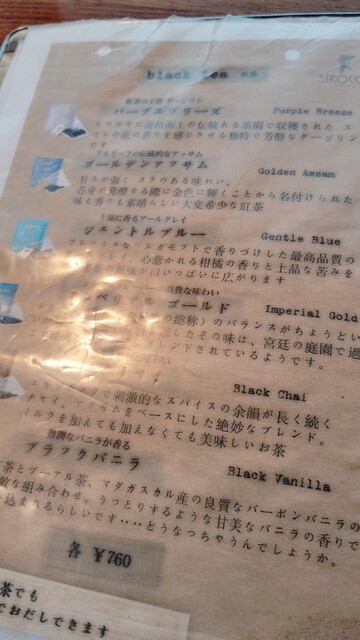 black tea 紅茶
SIROCCO
紅茶の王様 ダージリン
パープルブリーズ Purple Breeze
ヒマラヤの南斜面上の伝統ある茶園で収穫された ス
ミレの花の香りを感じさせる独特で芳醇なダージリン
です
フルリーフの伝統的なアッサム
ゴールデンアッサム Golden Assam
甘みが強く、コクのある味わい。
芯芽が発酵する際に金色に輝くことから名付けられた
味も香りも素晴らしい大変希少な紅茶
上品に香るアールグレイ
ジェントルブルー Gentle Blue
フレッシュなベルガモットで香りづけした最高品質の
心惹かれる柑橘の香りと上品な苦みを
風味が口いっぱいに広がります
高貴な味わい
ンペリアル ゴールド Imperial Gold
の総称）のバランスがちょうどい
したその味は、宮廷の庭園で過
ブレンドされているようです。
Black Chai
で刺激的なスパイスの余韻が長く続く
チャイ。アッサムをベースにした絶妙なブレンド。
ミルクを加えても加えなくても美味しいお茶
豊潤なバニラが香る
ブラックバニラ Black Vanilla
茶とプーアル茶、マダガスカル産の良質なバーボンバニラの
敵な組み合わせ。うっとりするような甘美なバニラの香りで
込まれるらしいです‥‥どうなっちゃうんでしょうか。
各 ¥760
茶でも
でおだしできます